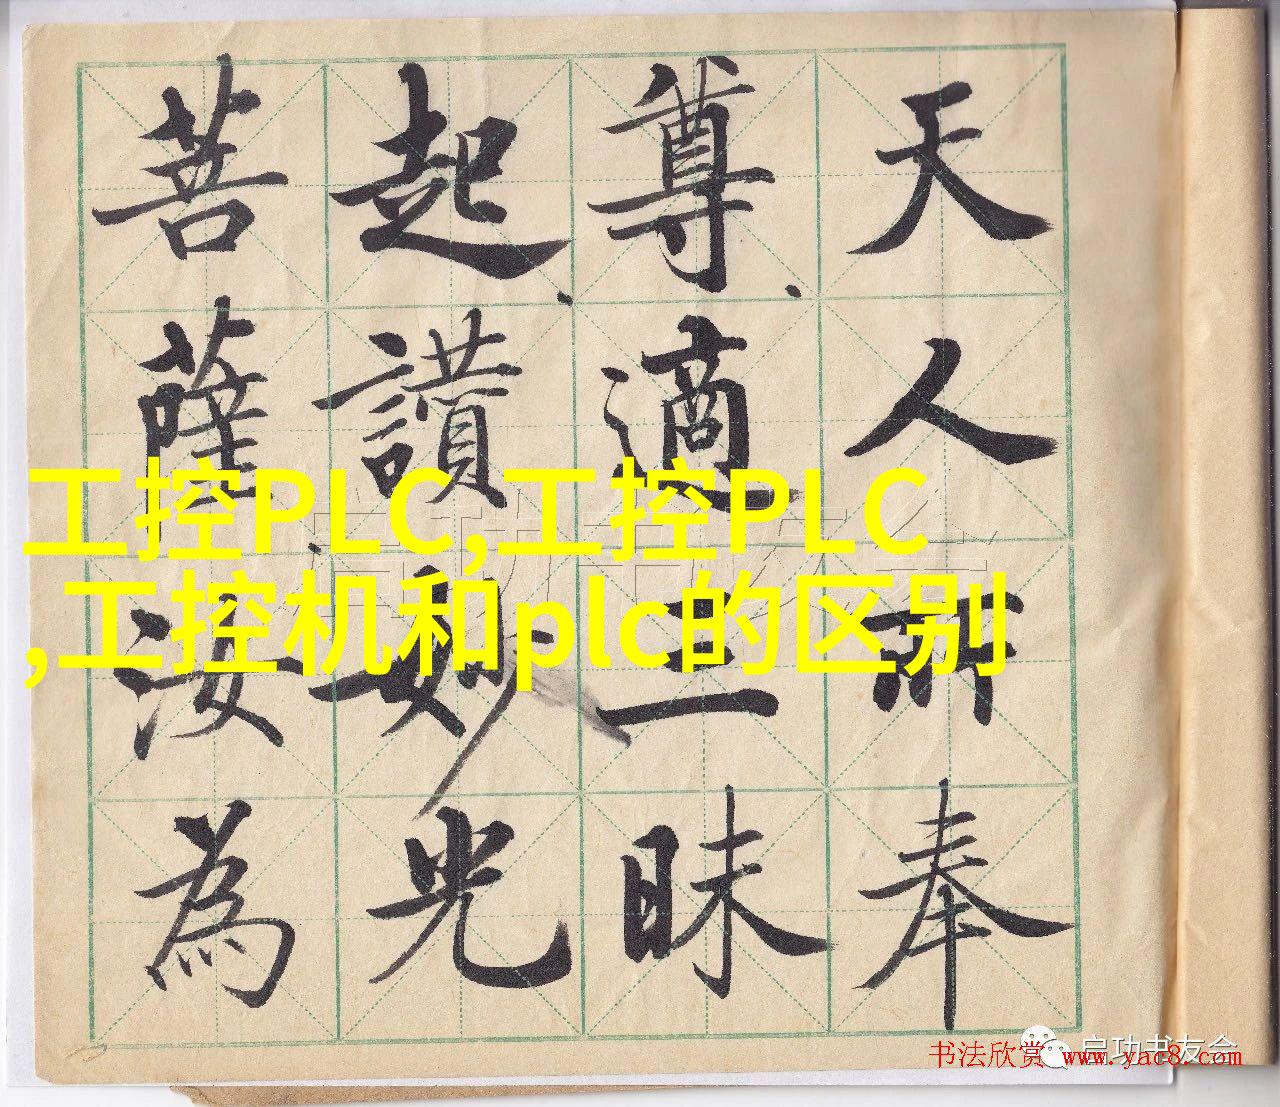 天人所奉
尊、適三昧
起、讚妙光
菩薩汝為
工控PLC,工控PLC
,工控机和plc的区别
启功书友会
书法欣赏 www.yac8.com